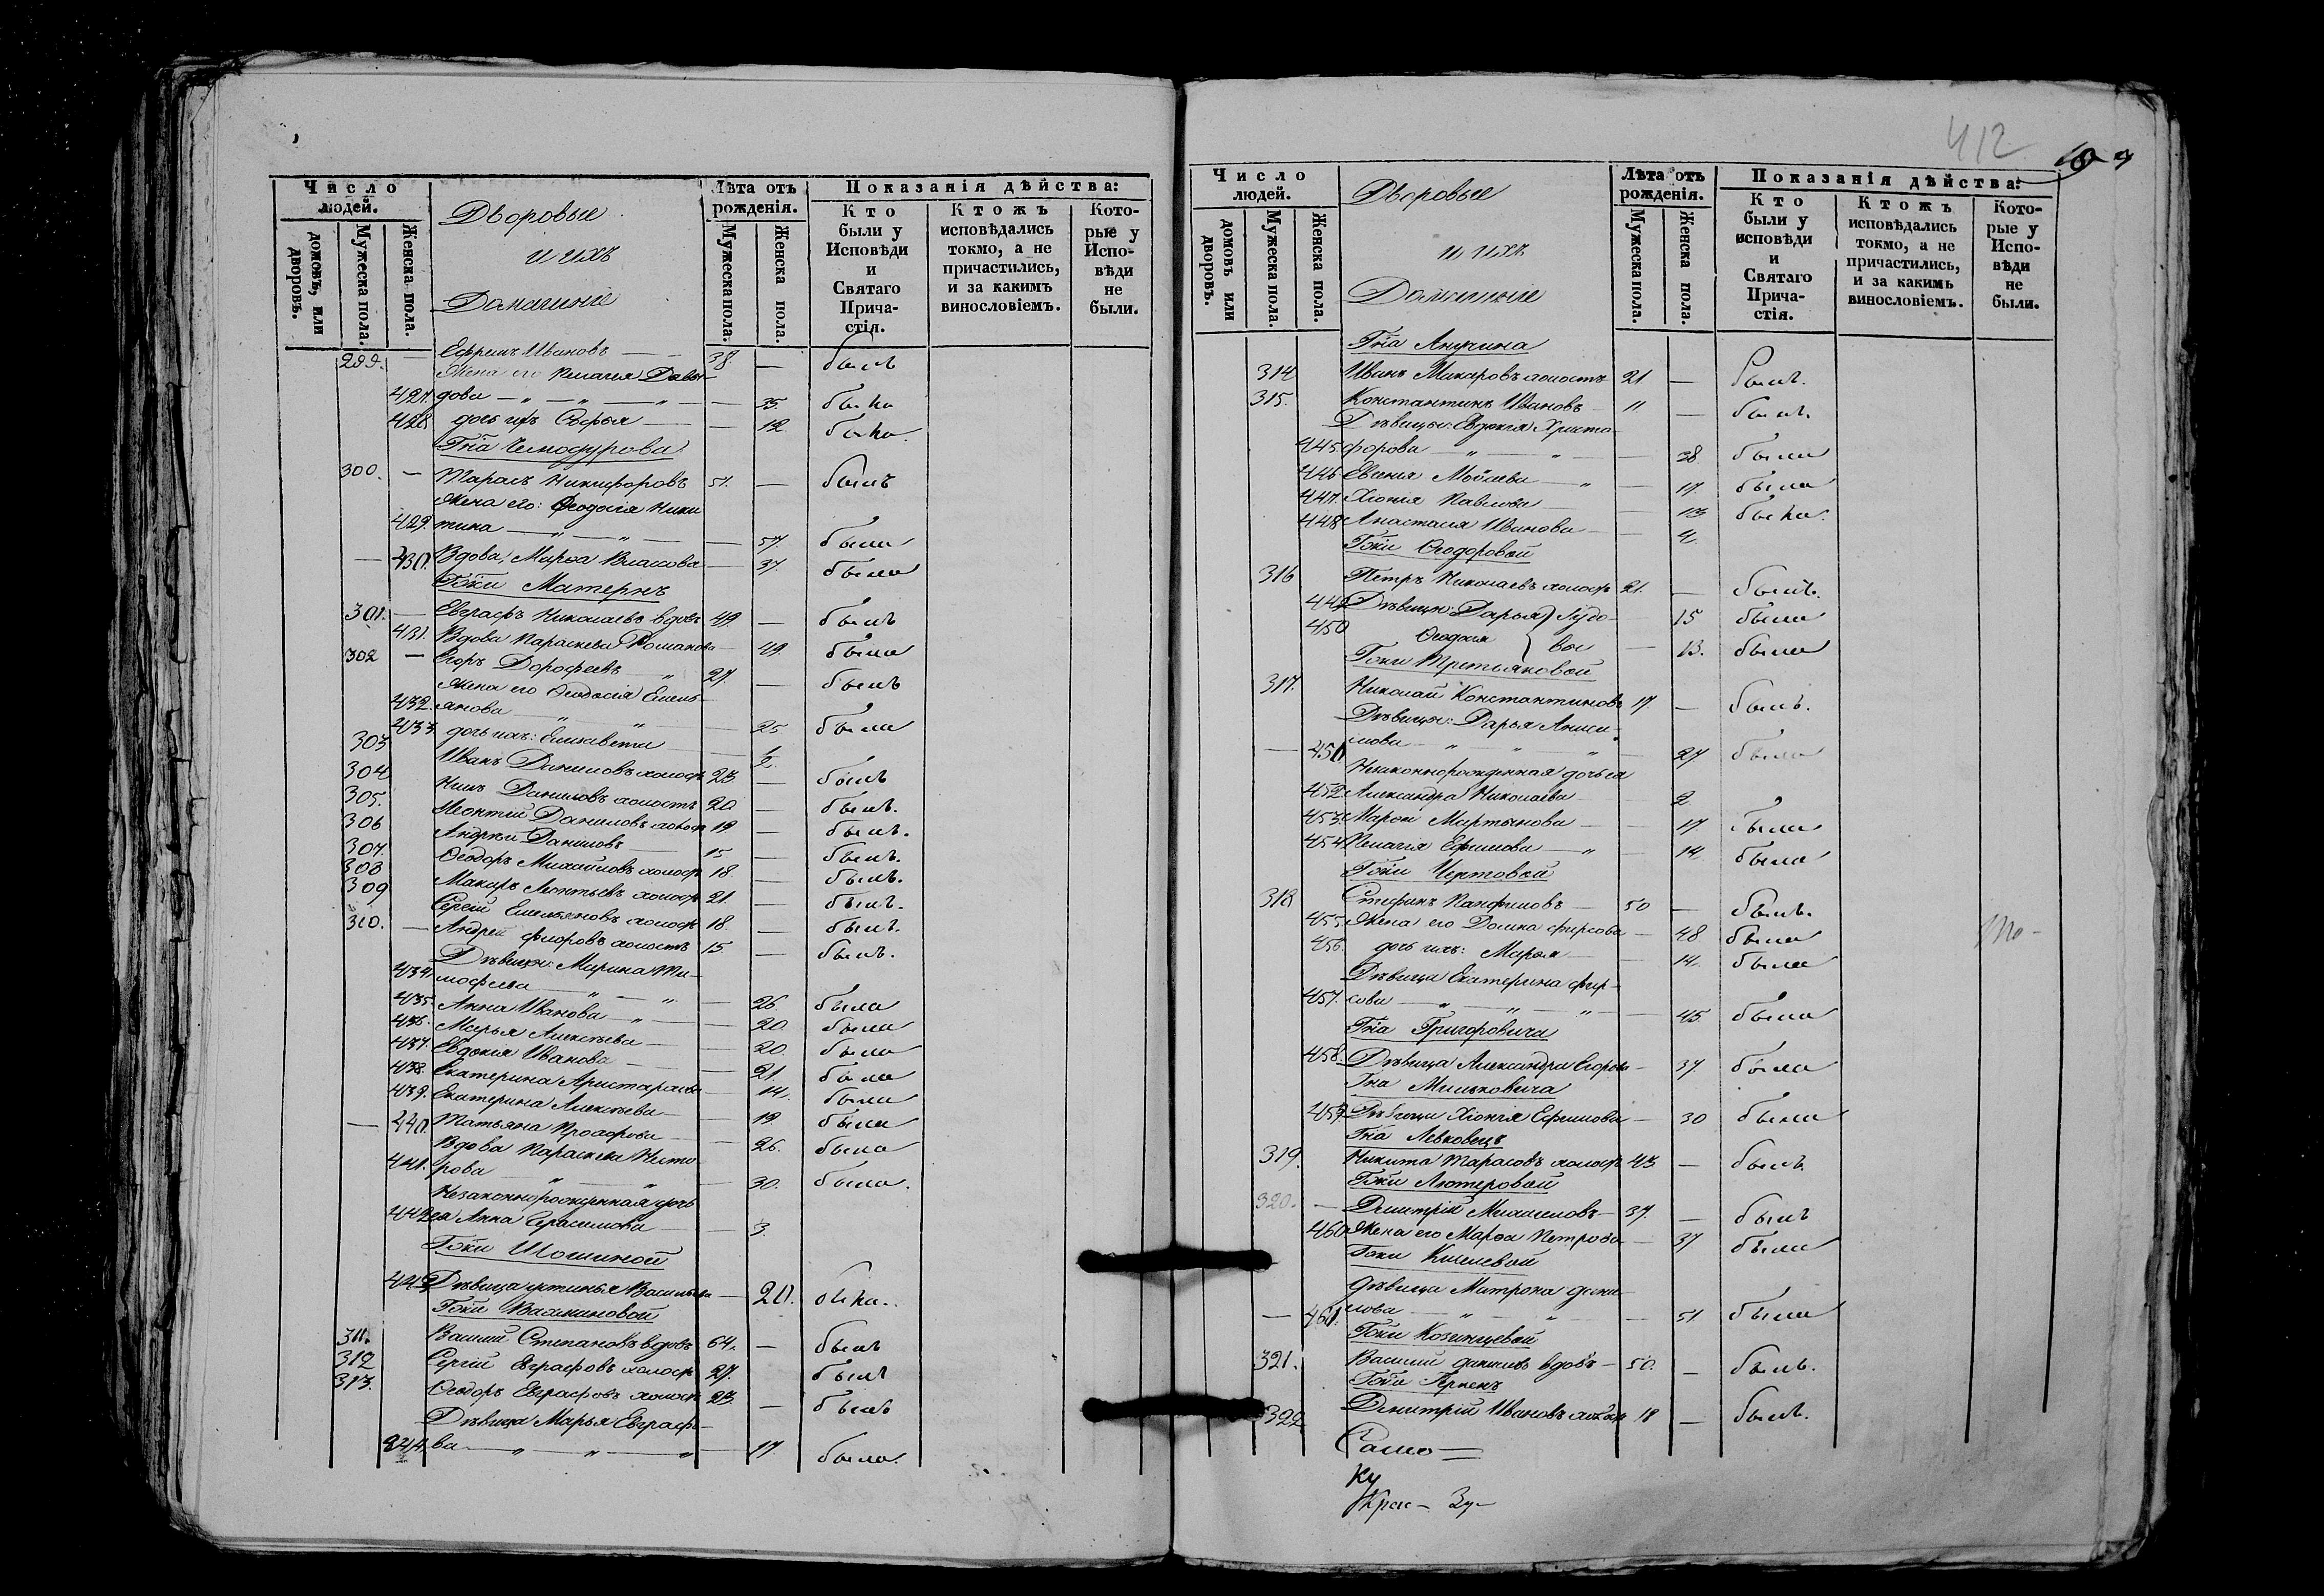 Число людей.
домовъ, или дворовъ.
Мужеска пола.
Женска пола.
Дворовые
и ихъ
Домашние
Лѣта отъ рожденія.
Мужеска пола.
Женска пола.
Показанія дѣйства:
Кто были у Исповѣди и Святаго Причастія.
Ктожъ исповѣдались токмо, а не причастились, и за какимъ винословіемъ.
Которые у Исповѣди не были.
299. — Ефремъ Ивановъ — 38 — былъ
Жена его Пелагея Давы-
427. дова — „ — „ — „ — 35. была
428. дочь ихъ Софья — — 12. была
Гна Чемодурова
300. — Тарасъ Никифоровъ 51. — былъ
Жена его: Ѳеодосія Ники
429. тина — „ — „ — 57. была
— 430. Вдова, Марѳа Власова — 37. была
Гжи Матернъ
301. — Евграфъ Николаевъ вдовъ 49 — былъ
431. Вдова Параскева Романова — 49. была
302 — Егоръ Дорофеевъ „ 27. — былъ
Жена его Ѳеодосія Емель-
432. янова — „ „ — 25 была
433. дочь ихъ: Елисавета — ½.
303 Иванъ Даниловъ холостъ 23 — былъ
304 Нилъ Даниловъ холостъ 20 — былъ.
305. Леонтій Даниловъ холост 19 — былъ.
306 Андрей Даниловъ 15 — былъ.
307. Ѳеодоръ Михайловъ холост 18 — былъ.
308 Макаръ Леонтьевъ холост 21. — былъ.
309 Сергій Емельяновъ холост 18. — былъ.
310. — Андрей Флоровъ холостъ 15. — былъ.
Дѣвицы: Марина Ти-
434. мофеева — „ — „ — 26 была
435. Анна Иванова — „ — 20. была
436. Марья Алексѣева — — 20. была
437. Евдокія Иванова — — 21. была
438. Екатерина Аристархова — 14. была
439. Екатерина Алексѣева — 19. была
— 440. Татьяна Прохорова — 26. была
Вдова Параскева Нестѣ
441. рова — „ — „ — 30. была.
Незаконнорожденная дочь
442 ея Анна Герасимова — 3.
Гжи Шошиной
443 Дѣвица Устинья Васильева — 20. была.
Гжи Васькиновой
311. Василій Степановъ вдовъ 64. — былъ
312 Сергій Евграфовъ холост 27. — былъ
313. Ѳеодоръ Евграфовъ холост 23. — былъ
Дѣвица Марья Евграфо-
444. ва — „ „ „ — 17. была.
412
Число людей.
домовъ или дворовъ.
Мужеска пола.
Женска пола.
Дворовые
и ихъ
Домашние
Лѣта отъ рожденія.
Мужеска пола.
Женска пола.
Показанія дѣйства:
Кто были у исповѣди и Святаго Причастія.
Ктожъ исповѣдались токмо, а не причастились, и за какимъ винословіемъ.
Которые у Исповѣди не были.
Гна Анучина
314 Иванъ Макаровъ холостъ 21 — былъ.
315. Константинъ Ивановъ 11 — былъ.
Дѣвицы: Евдокія Христо-
445. форова — „ „ — 38 была
446. Евгенія Моѵсеева — „ — 17. была
447. Хіонія Павлова — 13 была.
448 Анастасія Иванова — 4.
Гжи Ѳеодоровой
316 Петръ Николаевъ холост 21. — былъ.
449 Дѣвицы: Дарья } Лудо- 15 была
450 Ѳеодосія } вы — 13. была
Гжи Третьяковой
317. Николай Константиновъ 17. — былъ.
Дѣвицы: Дарья Аниси-
— 451. мова — „ „ „ — 27 была
Незаконнорожденная дочь ея
452. Александра Николаева — 2
453. Марѳа Мартынова — 17. была
454 Пелагія Ефимова — „ — 14. была
Гжи Чертовой
318 Стефанъ Панфиловъ — 50 — былъ.
455. Жена его Домна Фирсова — 48 была
456. дочь ихъ: Марья — 14. была
Дѣвица Екатерина Фир-
457. сова — „ „ „ — 45. была
Гна Григоровича
458. Дѣвица Александра Егорова — 37. была
Гна Мильковича
459. Дѣвица Хіонія Ефимова — 30 была
Гна Левковецъ
319. Никита Тарасовъ холост 43 — былъ
Гжи Лютеровой
320. — Димитрій Михайловъ — 37. — былъ
460 Жена его Марѳа Петрова — 37 была
Гжи Киселевой
Дѣвица Матрона Дани-
— 461. лова — „ „ — 51 была
Гжи Козинцевой
321. Василій Даниловъ вдовъ — 50. — былъ.
Гжи Гернекъ
322 Димитрій Ивановъ холост 18 — былъ.